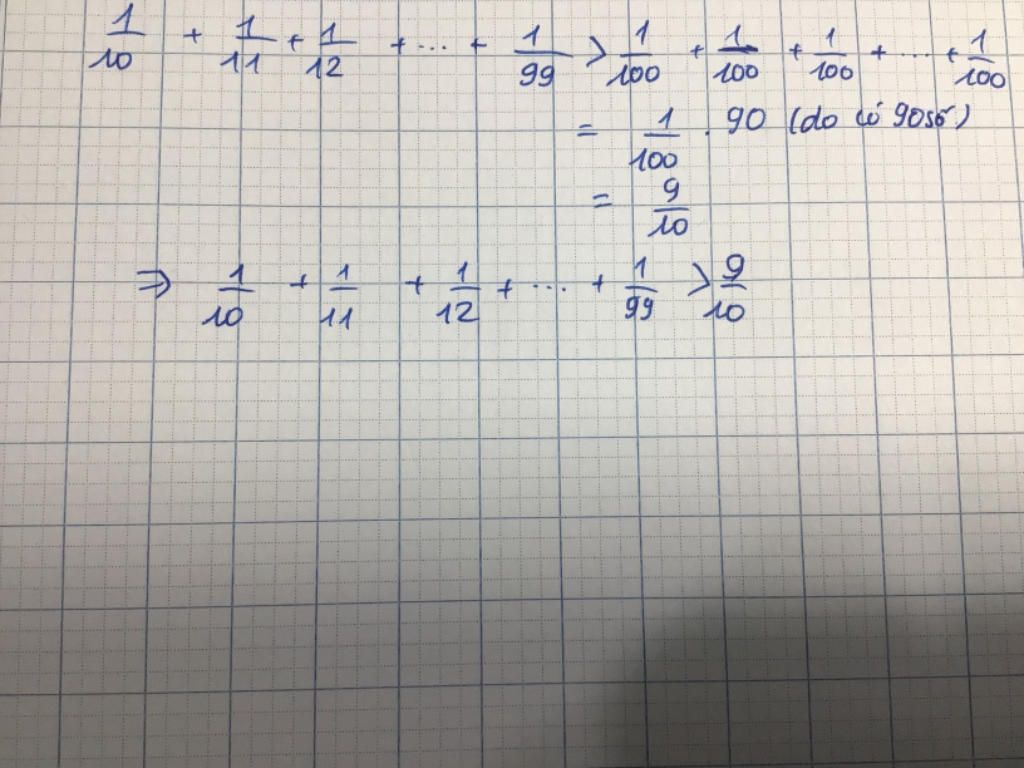 1/10 + 1/11 + 1/12 + ... + 1/99 > 1/100 + 1/100 + 1/100 + ... + 1/100
= 1/100 . 90 (do có 90 số)
= 9/10
⇒ 1/10 + 1/11 + 1/12 + ... + 1/99 > 9/10